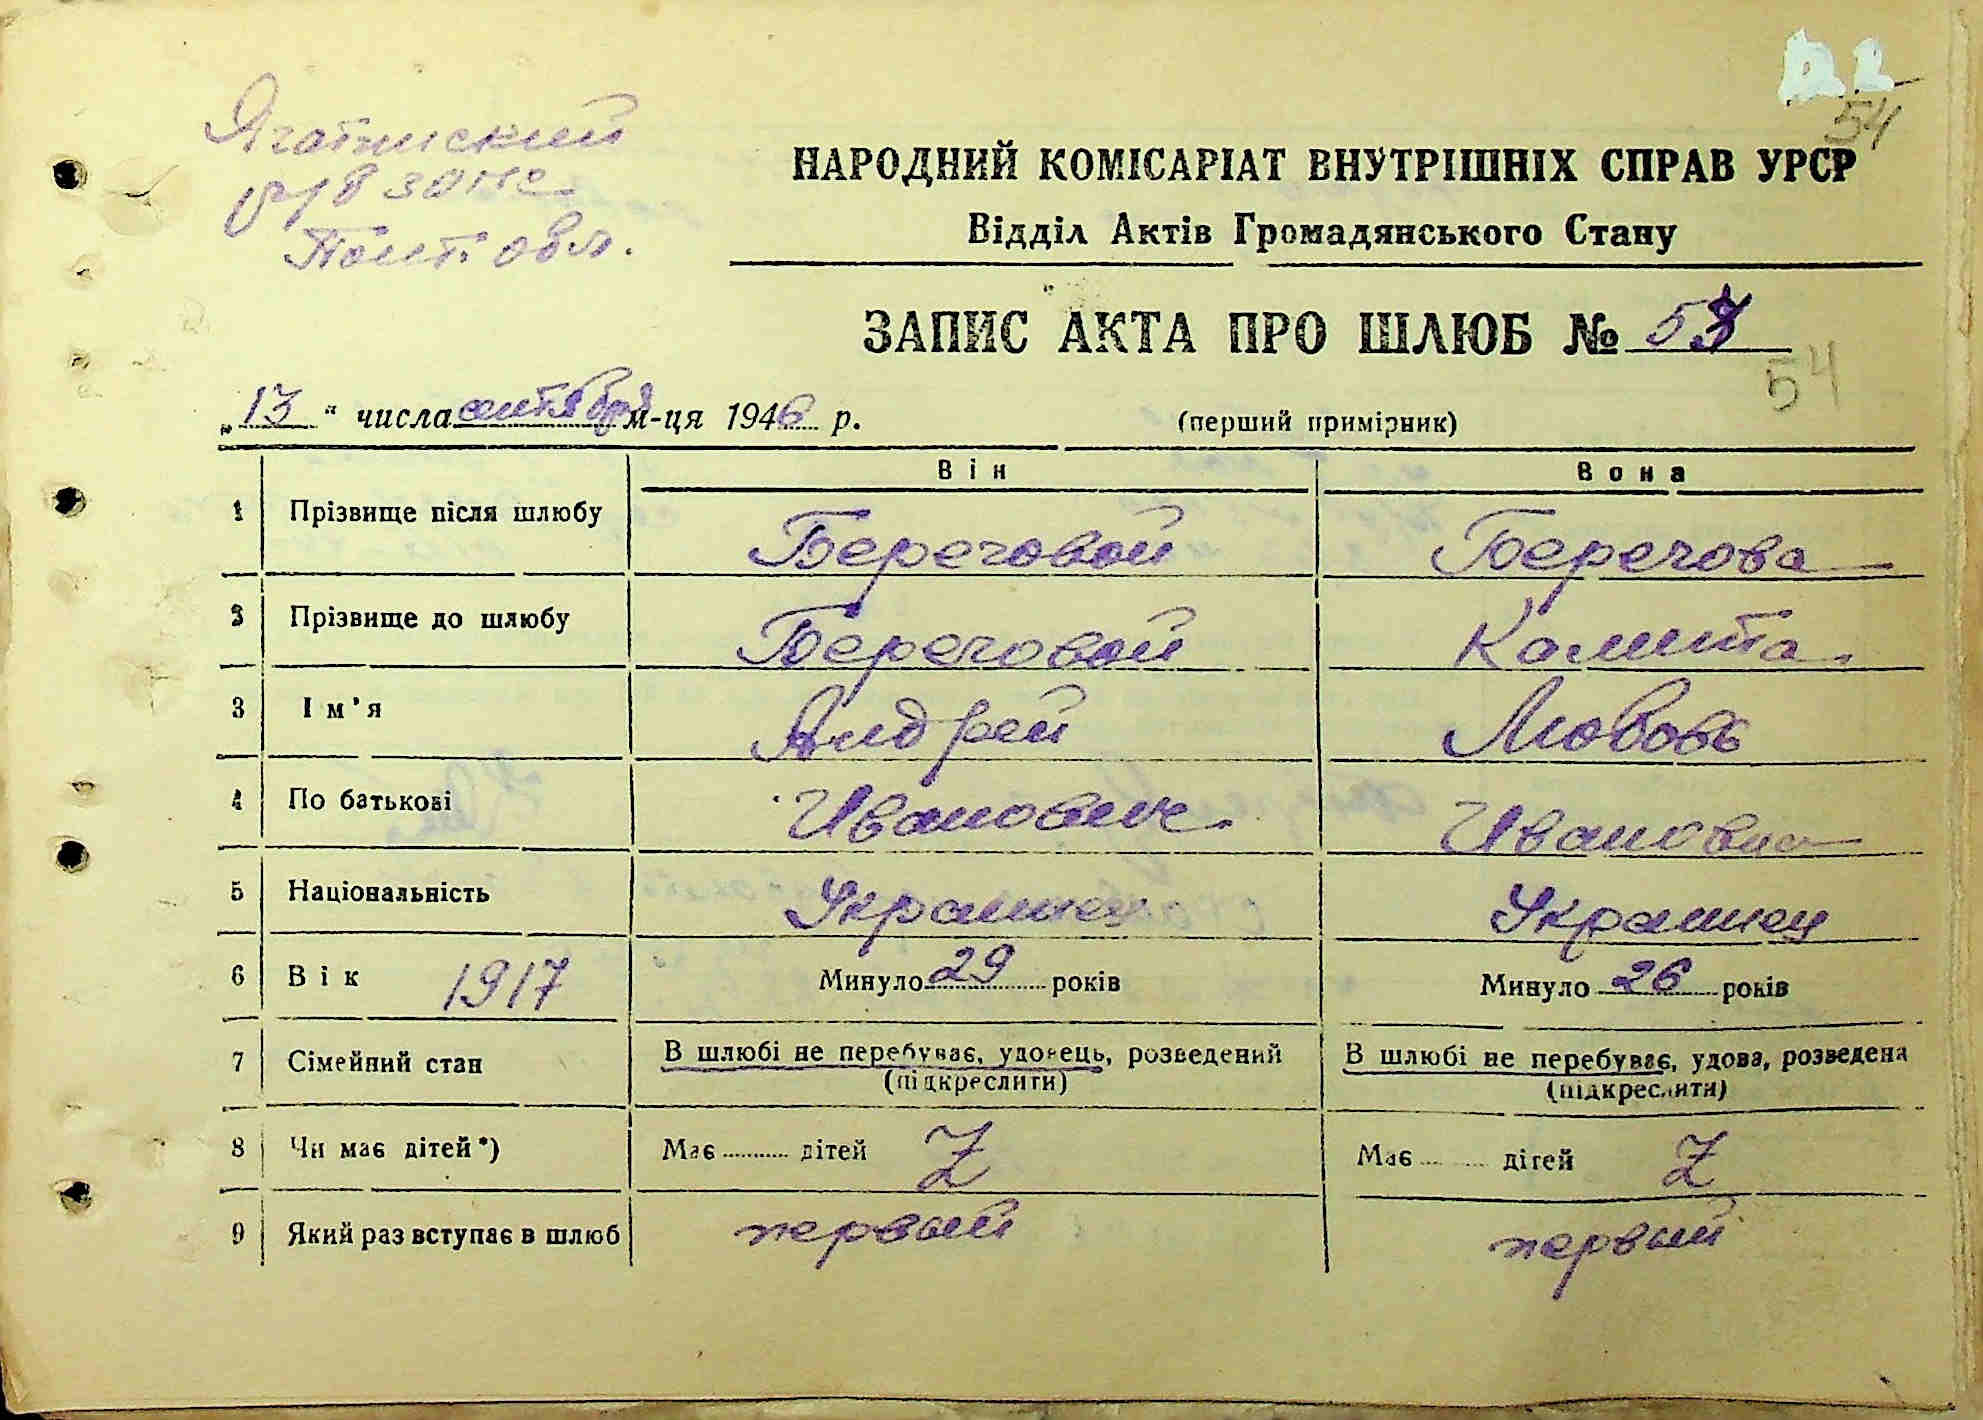 Яготинский
р/взагс
Полт. обл.
54
НАРОДНИЙ КОМІСАРІАТ ВНУТРІШНІХ СПРАВ УРСР
Відділ Актів Громадянського Стану
ЗАПИС АКТА ПРО ШЛЮБ №
54
„13" числа сентября м-ця 1946 р. (перший примірник)
Він Вона
1 Прізвище після шлюбу Береговой Берегова
2 Прізвище до шлюбу Береговой Калита
3 Ім'я Андрей Любовь
4 По батькові Иванович Ивановна
5 Національність Украинец Украинец
6 Вік 1917 Минуло 29 років Минуло 26 років
7 Сімейний стан В шлюбі не перебуває, удовець, розведений В шлюбі не перебуває, удова, розведена
(підкреслити) (підкреслити)
8 Чи має дітей*) Має дітей Z Має дітей Z
9 Який раз вступає в шлюб первый первый